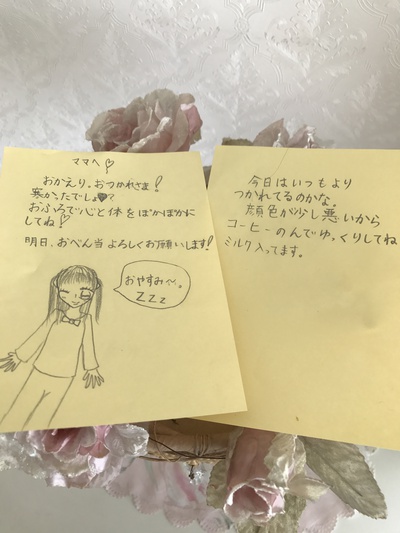 ママへ♡
おかえり。おつかれさま!
寒かったでしょ?
おふろで心と体をぽかぽかに
してね!
明日、おべん当よろしくお願いします!
おやすみ〜。
ZZZ
今日はいつもより
つかれてるのかな。
顔色が少し悪いから
コーヒーのんでゆっくりしてね
ミルク入ってます。